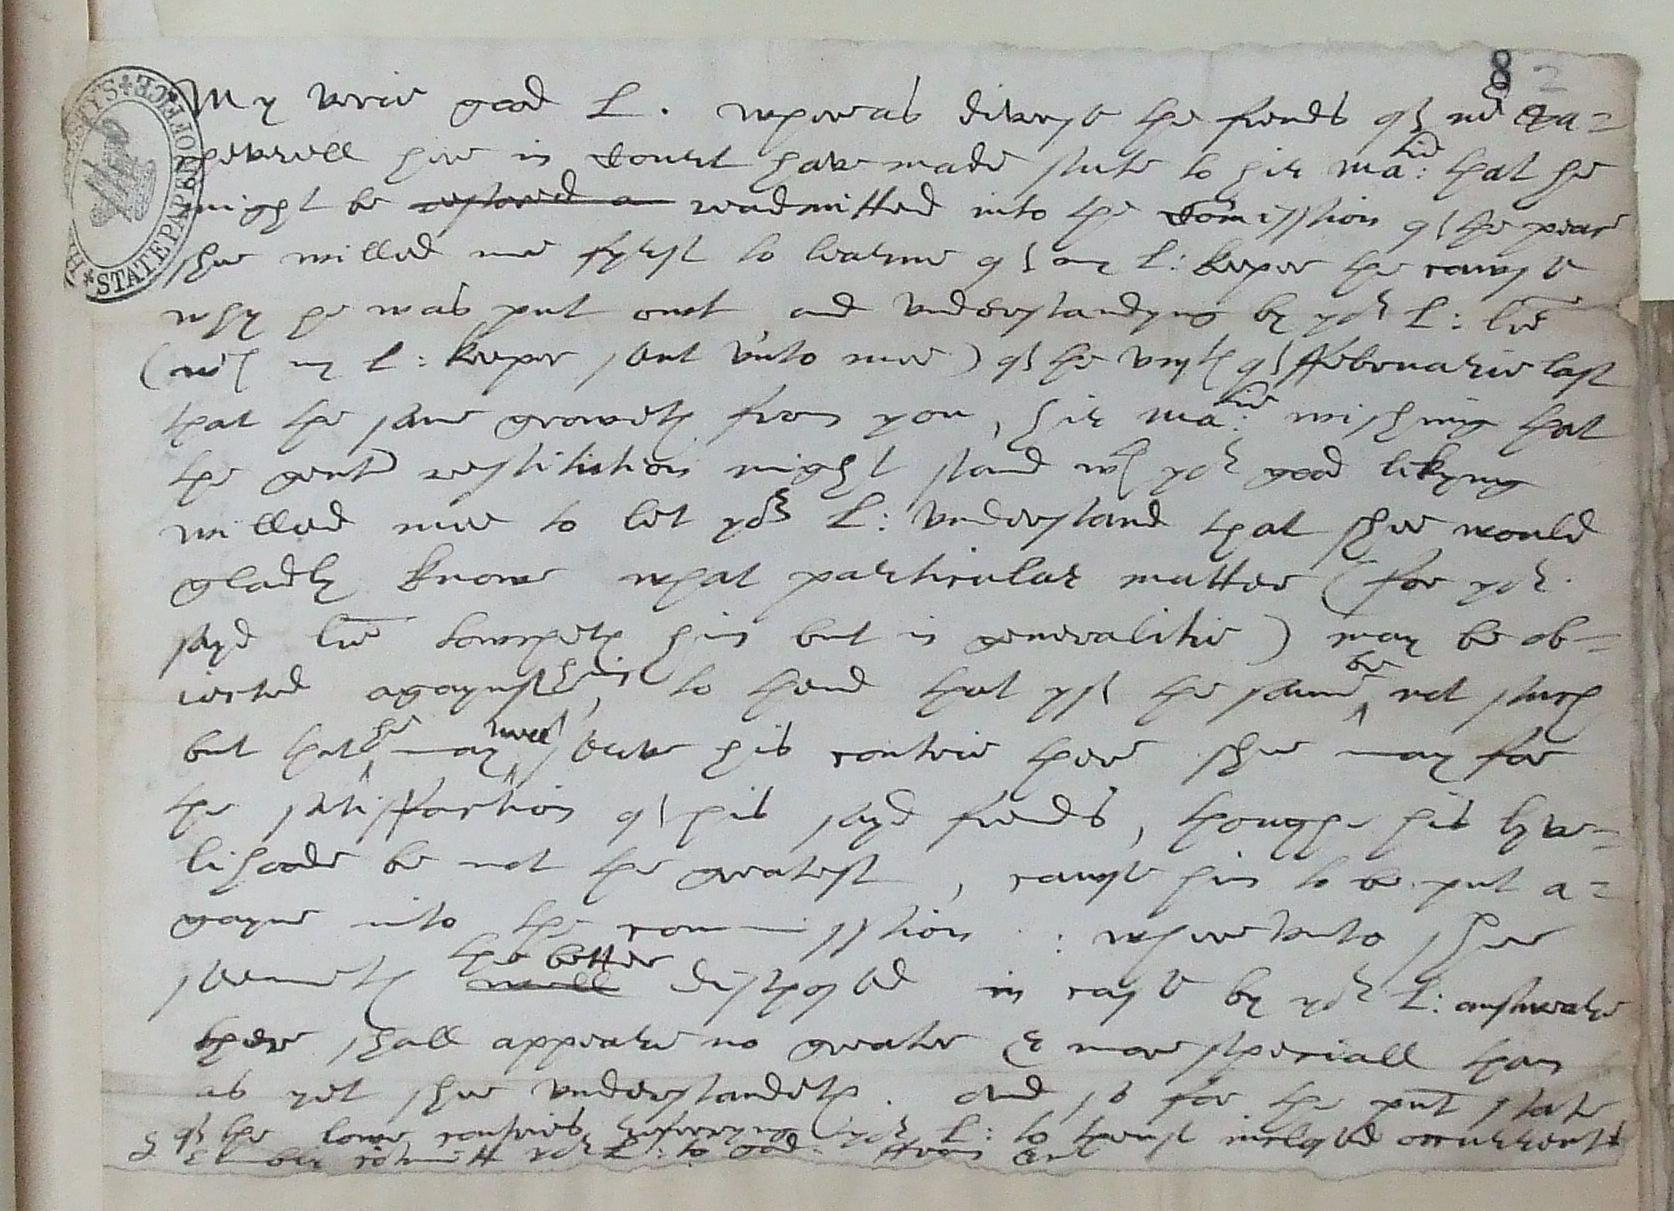 8 2
STATE PAPER OFFICE
My verie good L. whereas diverse the frends of mr Ba=
here in Court have made sute to hir Matie: that he
might be restored a readmitted into the Comission of the peace
shee willed me fyrst to learne of my L: keper the cause
why he was put owt, and understandyng by yor L: lre
(wch my L: keeper sent unto mee) of the viijth of ffebruarie last
that the same groweth from you, hir Matie: wishing that
the gent restitution might stand wth yor good likyng
willed mee to let yor L: understand that shee would
gladly knowe what particular matter (for yor
sayd lre towcheth him but in generalitie) may be ob=
iected agaynst him, to thend that yf the same be not such
but that he may well serve his contrie there shee may for
the satisfaction of his sayd frends, thoughe his lyve=
lihoode be not the greatest, cause him to be put a=
gayne into the commission: whereunto shee
seemeth well the better disposed in case by yor L: answeare
there shall appeare no greater & more speciall than
as yet shee understandeth. And so for the pnt state
of the lowe contries referryng yor L: to thenclosed occurrents
yor L: to god. From